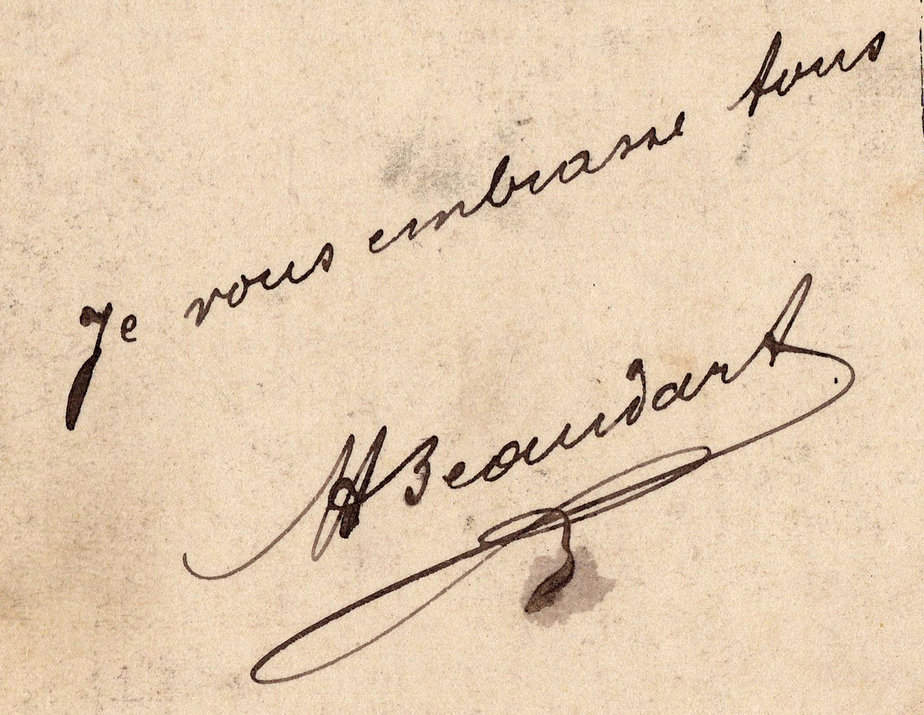 Je vous embrasse tous
H Beaudart